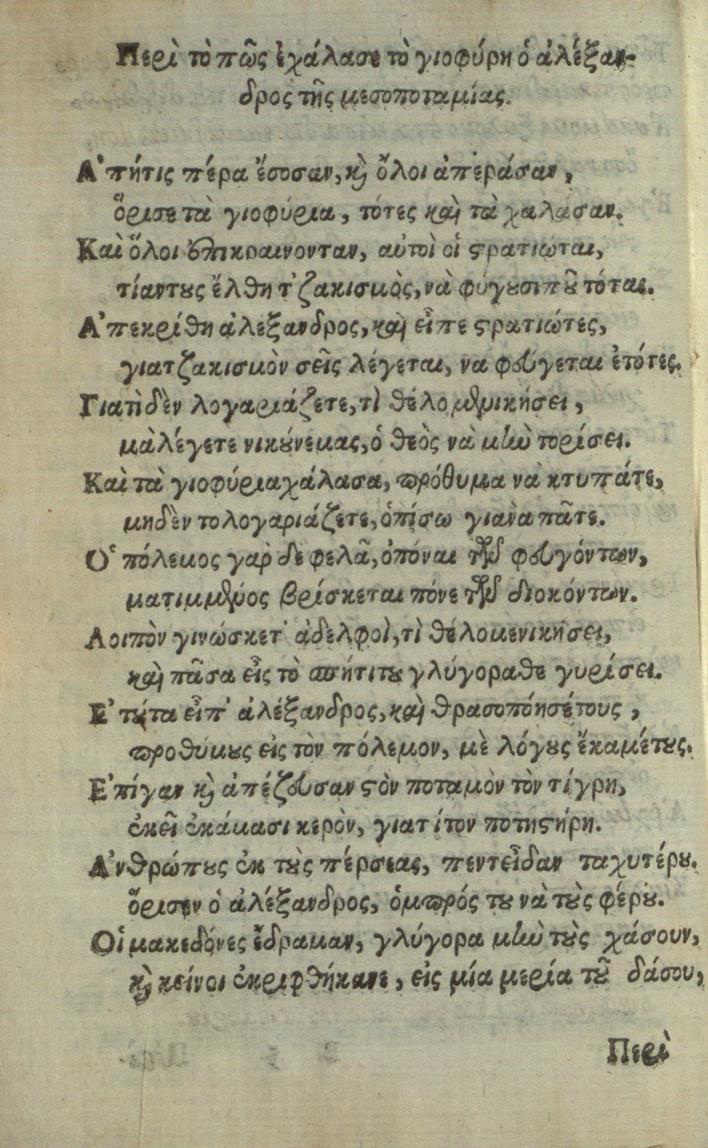 Περὶ τὸ πῶς ἐχάλασε τὸ γιοφύρη ὁ ἀλέξαν-
δρος τῆς μεσοποταμίας.
Α᾿πήτις πέρα ἔσοσαν, κὴ ὅλοι ἀπεράσαν,
ὅρισε τὰ γιοφύρια, τότες καὶ τὰ χαλάσαν.
Καὶ ὅλοι ἐπικραινονταν, αὐτοὶ οἱ στρατιώται,
τίαντους ἔλθη τ᾿ζακισμὸς, νὰ φύγουσι ποῦ τότας.
Α᾿πεκρίθη ἀλέξανδρος, καὶ εἶπε στρατιώτες,
γιατζακισμὸν σεῖς λέγεται, να φεύγεται ἐτότες.
Γιατὶ δὲν λογαριάζετε, τὶ θέλομεν νικήσει,
μὰ λέγετε νικούνεμας, ὁ θεὸς νὰ μὴν τορίσει.
Καὶ τὰ γιοφύριαχάλασα, πρόθυμα νὰ κτυπάτε,
μηδὲν το λογαριάζετε, ὀπίσω γιανὰ πᾶτε.
Ο῾ πόλεμος γαρ δὲ φελᾶ, ὁπόναι τῶν φευγόντων,
ματιμμένος βρίσκεται πόνε τῶν διοκόντων.
Λοιπὸν γινώσκετ᾿ ἀδελφοὶ, τὶ θέλομενικήσει,
καὶ πᾶσα εἰς τὸ σπήτιτου γλύγοραθε γυρίσει.
Ε᾿τούτα εἶπ᾿ ἀλέξανδρος, καὶ θρασοποίησέτους,
προθύμους εἰς τὸν πόλεμον, μὲ λόγους ἔκαμέτους.
Ε᾿πίγαν κὴ ἀπέζευσαν στὸν ποταμὸν τὸν τίγρη,
ἐκεῖ ἐκάμασι κερὸν, γιατίτον ποτηστήρη.
Α᾿νθρώπους ἐκ τοὺς πέρσεας, πεντεῖδαν ταχυτέρου.
ὅρισεν ὁ ἀλέξανδρος, ὁμπρός του νὰ τοὺς φέρου.
Οἱ μακεδόνες ἔδραμαν, γλύγορα μὴν τοὺς χάσουν,
κὴ κείνοι ἐκριφθήκανε, εἰς μία μερία τοῦ δάσου,
Περὶ